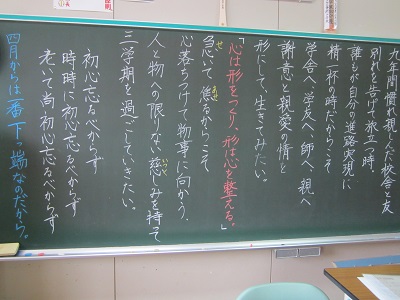 九年間慣れ親しんだ校舎と友
別れを告げて旅立つ時、
誰もが自分の進路実現に
精一杯の時だからこそ
学舎へ、学友へ、師へ、親へ
謝意と親愛の情と
形にして、生きてみたい。
「心は形をつくり、形は心を整える。」
急いて、焦るからこそ
せ
あせ
心落ちつけて物事に向かう、
人と物への限りない慈しみを持って
いつく
三学期を過ごしていきたい。
初心忘るべからず
時時に初心忘るべからず
老いて尚初心忘るべからず
四月からは一番下っ端なのだから。